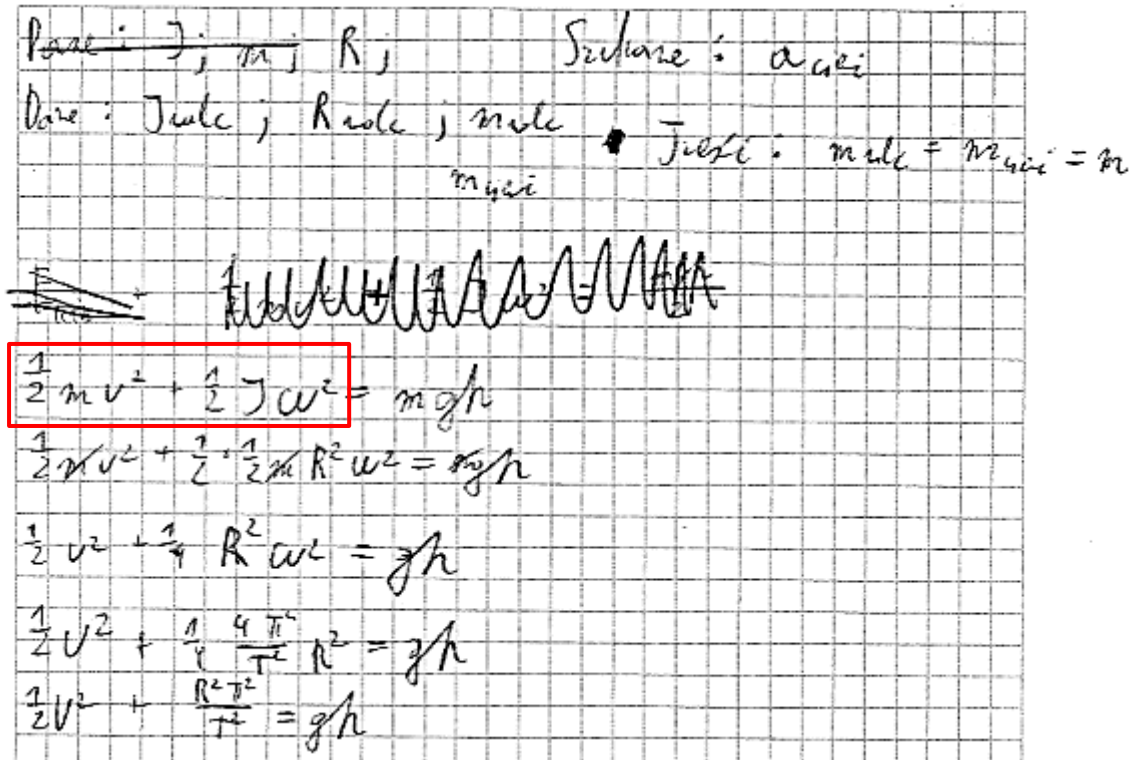 Dane : J ; m ; R ; Szukane : a cięż
Dane : J walc ; R walc ; m walc Jeśli : m walc = m cięż = m
m cięż
1/2 m v² + 1/2 J ω² = m g h
1/2 m v² + 1/2 · 1/2 m R² ω² = m g h
1/2 v² + 1/4 R² ω² = g h
1/2 v² + 1/4 4π²/T² R² = g h
1/2 v² + R²π²/T² = g h